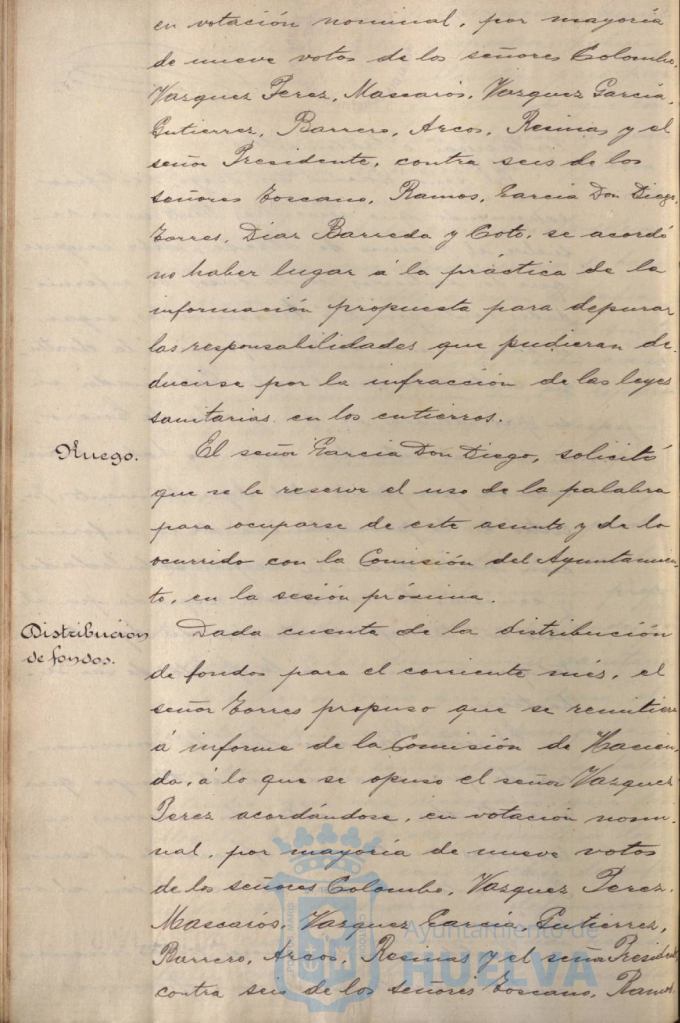 en votación nominal, por mayoría
de nueve votos de los señores Colombo,
Vazquez Perez, Mascarós, Vazquez García,
Gutierrez, Barrero, Arcos, Resinas y el
señor Presidente, contra seis de los
señores Toscano, Ramos, Garcia Don Diego,
Torres, Diaz Barreda y Coto, se acordó
no haber lugar á la práctica de la
información propuesta para depurar
las responsabilidades que pudieran de-
ducirse por la infracción de las leyes
sanitarias en los entierros.
Ruego.
El señor Garcia Don Diego, solicitó
que se le reserve el uso de la palabra
para ocuparse de este asunto y de lo
ocurrido con la Comisión del Ayuntamien-
to, en la sesión próxima.
Distribución
de fondos.
Dada cuenta de la distribución
de fondos para el corriente més, el
señor Torres propuso que se remitiera
á informe de la Comisión de Hacien-
da, á lo que se opuso el señor Vazquez
Perez acordándose, en votación nomi-
nal, por mayoría de nueve votos
de los señores Colombo, Vazquez Perez,
Mascarós, Vazquez Garcia, Gutierrez,
Barrero, Arcos, Resinas y el señor Presidente,
contra seis de los señores Toscano, Ramos,
Ayuntamiento de
HUELVA